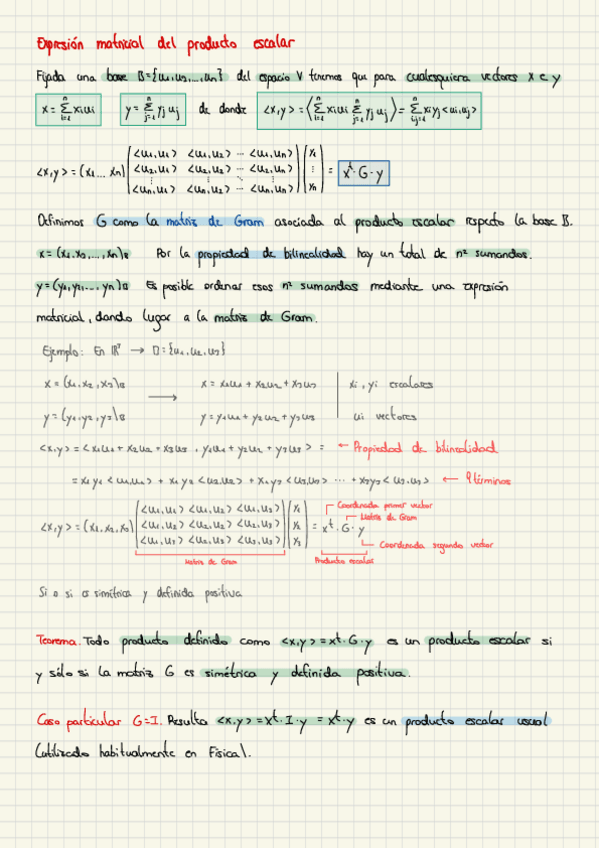 Expresión matricial del producto escalar
Fijada una base B={u₁,u₂,...,uₙ} del espacio V tenemos que para cualesquiera vectores x e y
x = Σⁿᵢ₌₁ xᵢuᵢ y = Σⁿⱼ₌₁ yⱼuⱼ de donde <x,y> = <Σⁿᵢ₌₁ xᵢuᵢ Σⁿⱼ₌₁ yⱼuⱼ> = Σⁿᵢ,ⱼ₌₁ xᵢyⱼ<uᵢ,uⱼ>
<u₁,u₁> <u₁,u₂> ... <u₁,uₙ> y₁
<x,y> = (x₁... xₙ) <u₂,u₁> <u₂,u₂> ... <u₂,uₙ> ⋮ = xᵗ·G·y
<uₙ,u₁> <uₙ,u₂> ... <uₙ,uₙ> yₙ
Definimos G como la matriz de Gram asociada al producto escalar respecto la base B.
x = (x₁,x₂,...,xₙ)B Por la propiedad de bilinealidad hay un total de n² sumandos.
y = (y₁,y₂,...,yₙ)B Es posible ordenar esos n² sumandos mediante una expresión
matricial, dando lugar a la matriz de Gram.
Ejemplo: En → B={u₁,u₂,u₃}
x = (x₁,x₂,x₃)B → x = x₁u₁ + x₂u₂ + x₃u₃ xᵢ, yᵢ escalares
y = (y₁,y₂,y₃)B y = y₁u₁ + y₂u₂ + y₃u₃ uᵢ vectores
<x,y> = <x₁u₁ + x₂u₂ + x₃u₃ , y₁u₁ + y₂u₂ + y₃u₃> = ← Propiedad de bilinealidad
= x₁y₁<u₁,u₁> + x₁y₂<u₁,u₂> + x₁y₃<u₁,u₃> ... + x₃y₃<u₃,u₃> ← 9 términos
Coordenada primer vector
<u₁,u₁> <u₁,u₂> <u₁,u₃> y₁ Matriz de Gram
<x,y> = (x₁,x₂,x₃) <u₂,u₁> <u₂,u₂> <u₂,u₃> y₂ = xᵗ·G·y
<u₃,u₁> <u₃,u₂> <u₃,u₃> y₃ Coordenada segundo vector
Matriz de Gram Producto escalar
Si o si simétrica y definida positiva
Teorema. Todo producto definido como <x,y> = xᵗ·G·y es un producto escalar si
y sólo si la matriz G es simétrica y definida positiva.
Caso particular G=I. Resulta <x,y> = xᵗ·I·y = xᵗ·y es un producto escalar usual
(utilizado habitualmente en Física).